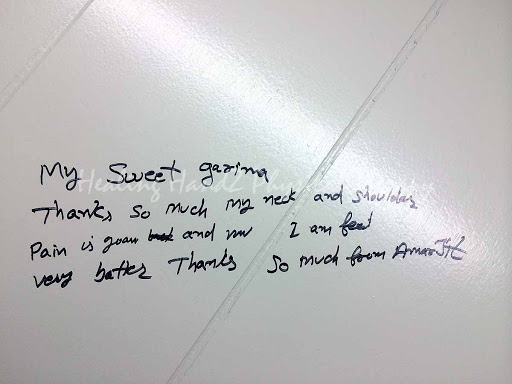 My Sweet garima
Healing Handz
Thanks so much my neck and shoulder
Pain is goan and I am feel
very batter Thanks so much from Amarjit